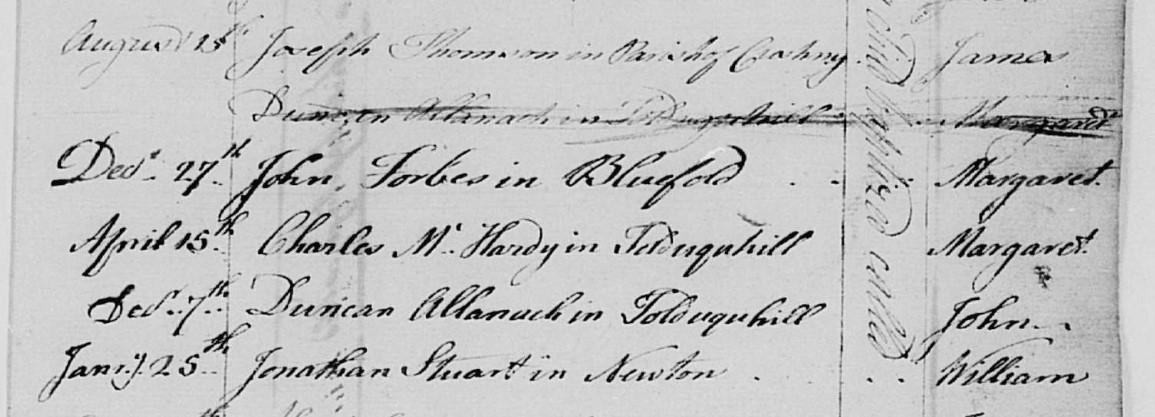 August 15th Joseph Thomson in Parish of Crathny James
Duncan Allanach in Tolduquhill Margaret
Decr. 27th John Forbes in Bluefold . . . Margaret
April 15th Charles Mc Hardy in Tolduquhill Margaret
Decr. 7th Duncan Allanach in Tolduquhill John
Janry. 25th Jonathan Stuart in Newton . . . William
child baptized called